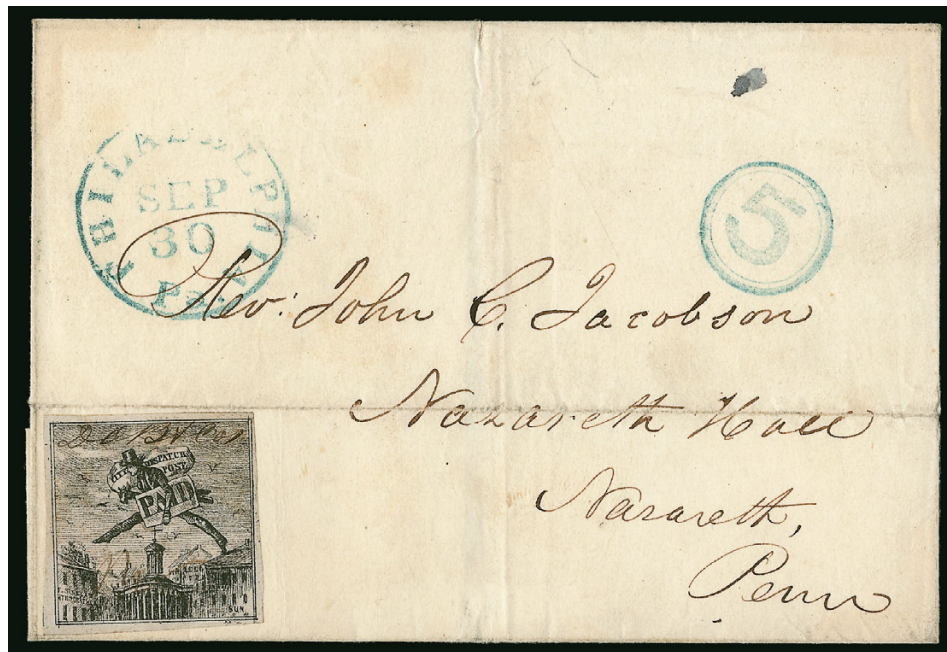 PHILADELPHIA
SEP
30
Pa.
5
Rev: John C. Jacobson
Nazareth Hall
Nazareth,
Penn
CITY DISPATCH
POST
PAID
SUN